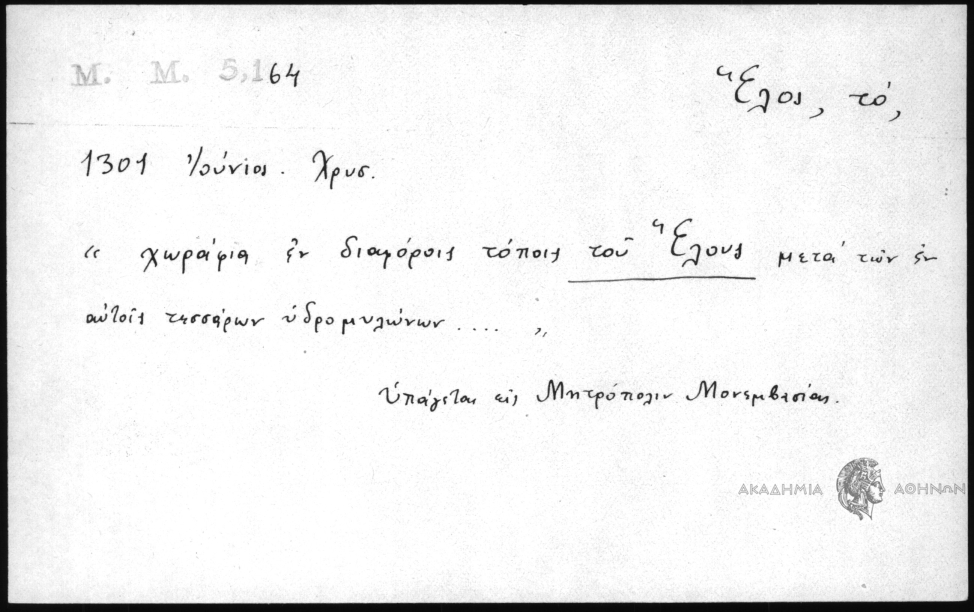 Μ. Μ. 5,164
Ἕλος, τό,
1301 Ἰούνιος. Χρυσ.
« χωράφια ἐν διαφόροις τόποις τοῦ Ἕλους μετά τῶν ἐν
αὐτοῖς τεσσάρων ὑδρομυλώνων .... „
Ὑπάγεται εἰς Μητρόπολιν Μονεμβασίας.
ΑΚΑΔΗΜΙΑ ΑΘΗΝΩΝ